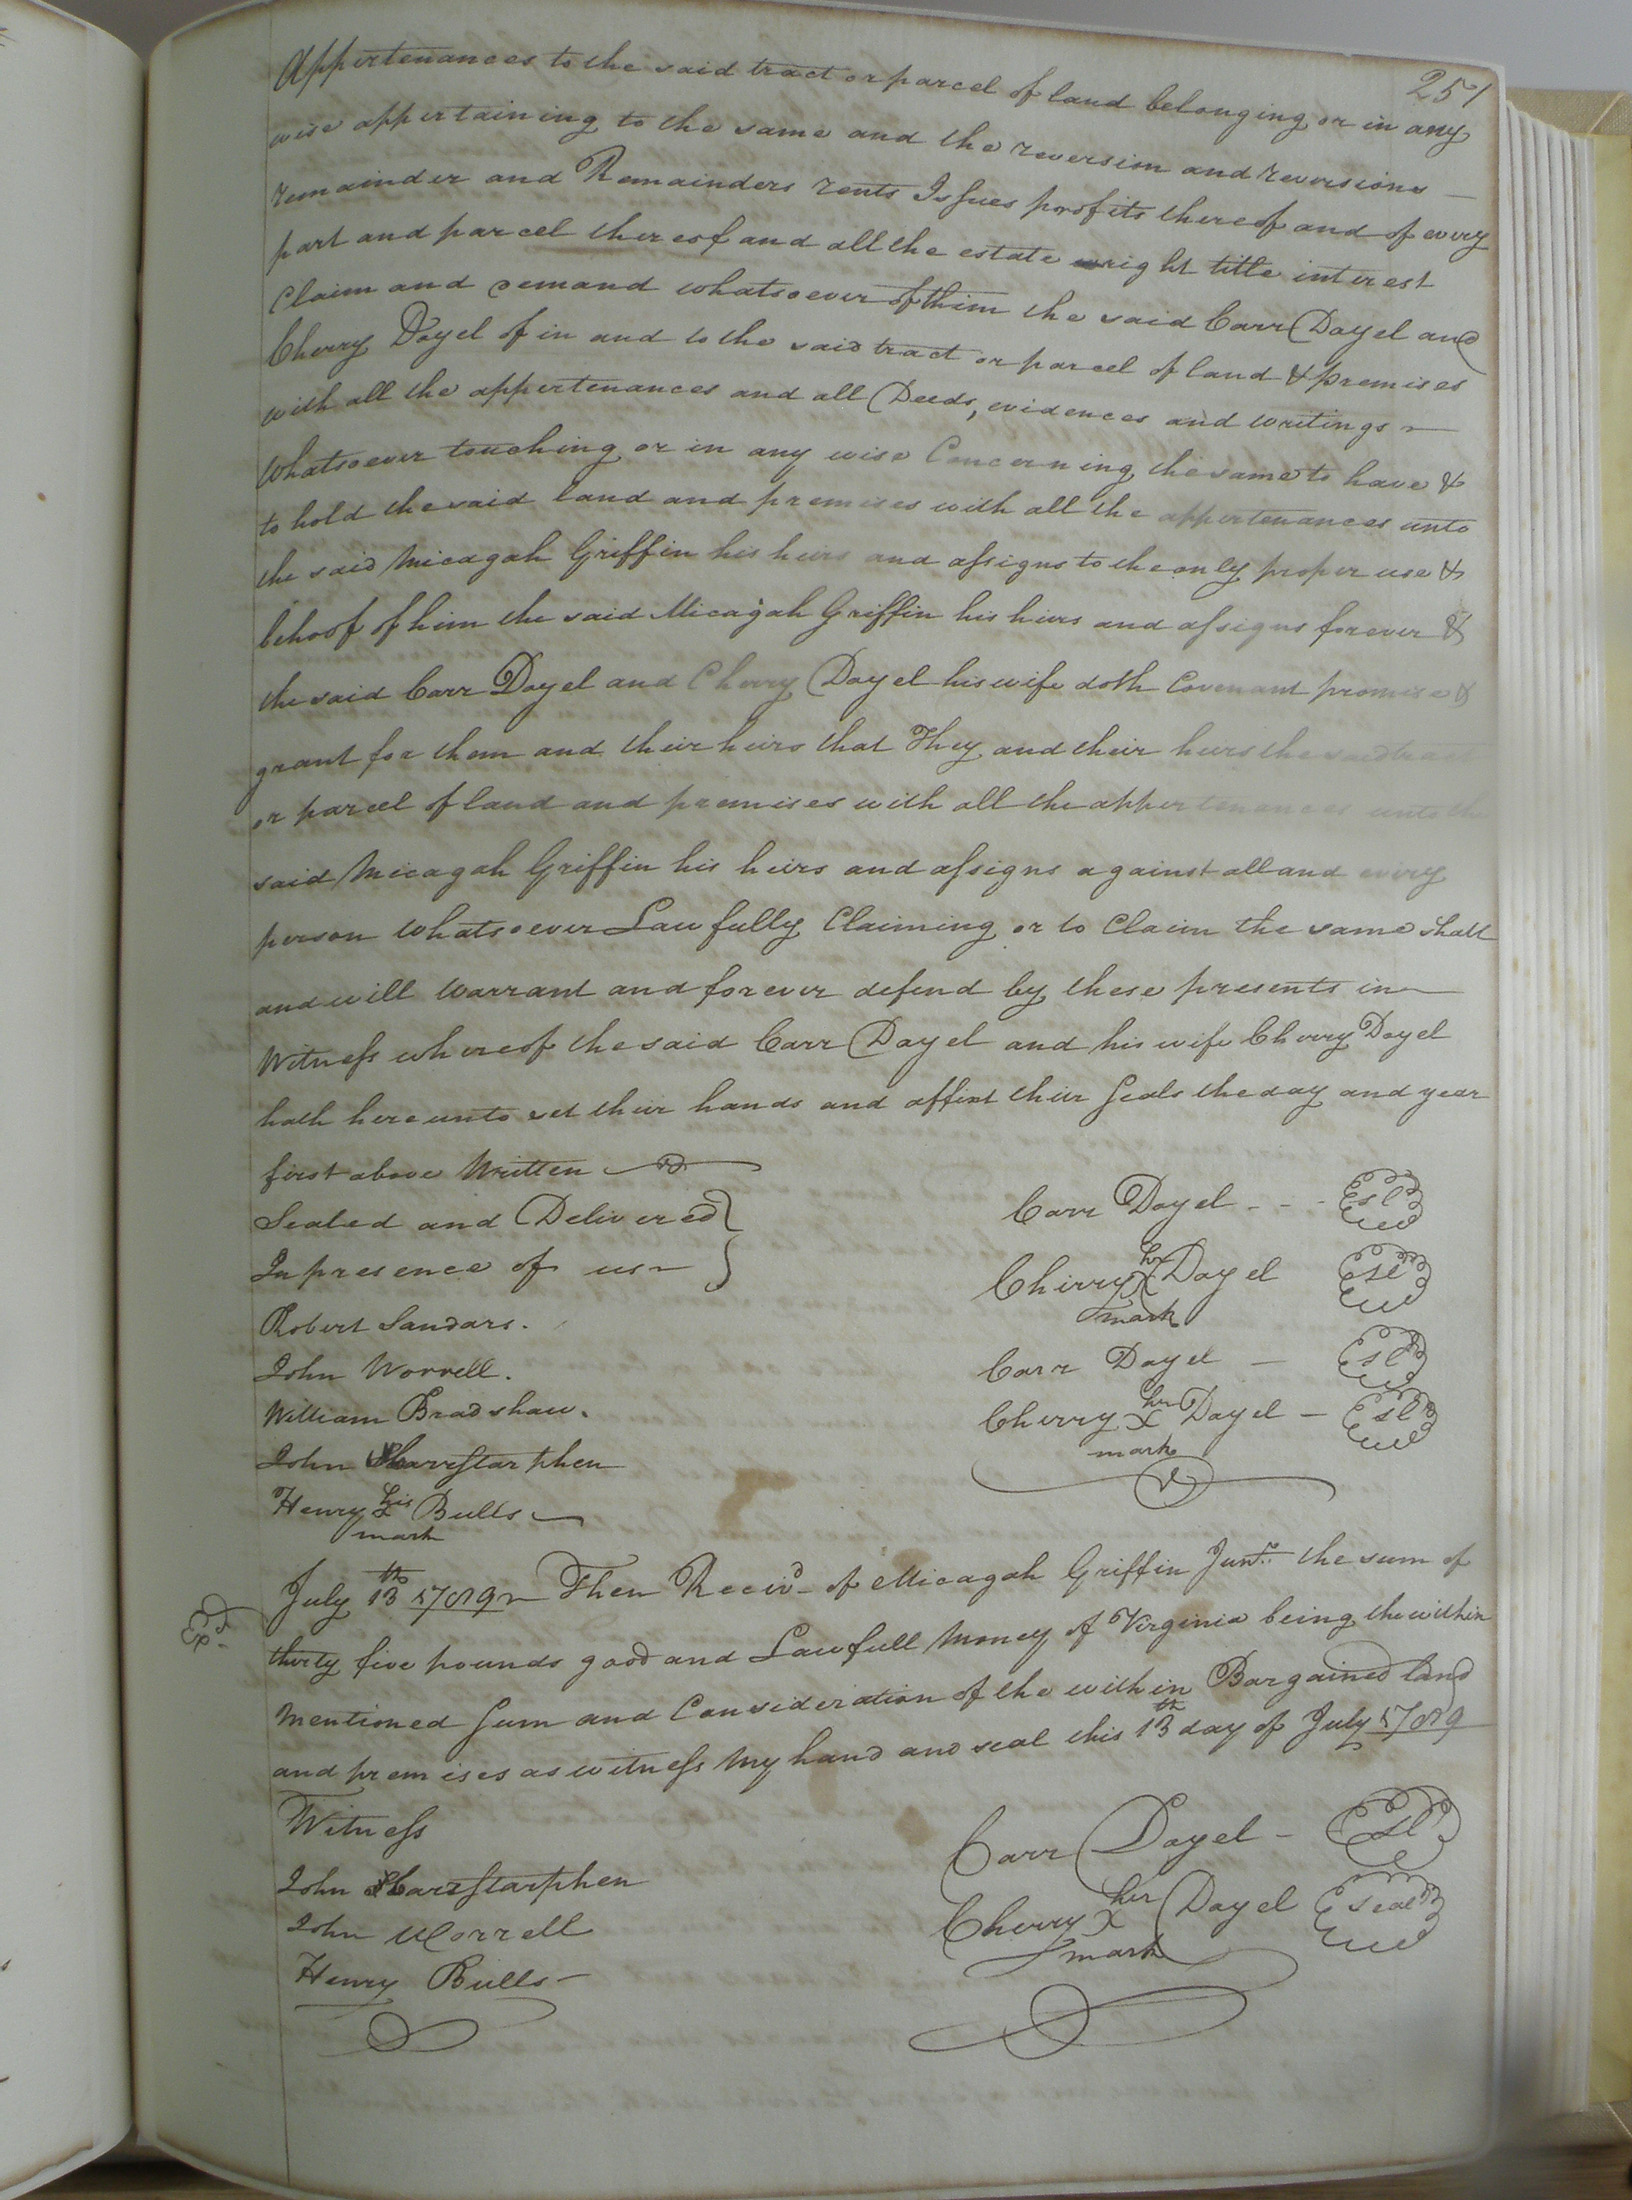 251
Appertenances to the said tract or parcel of land belonging or in any
wise appertaining to the same and the reversion and reversions
remainder and Remainders rents Issues profits thereof and of every
part and parcel thereof and all the estate right title interest
Claim and demand whatsoever of him the said Carr Dayel and
Cherry Dayel of in and to the said tract or parcel of land & premises
with all the appertenances and all Deeds, evidences and writings
Whatsoever touching or in any wise Concerning the same to have &
to hold the said land and premises with all the appertenances unto
the said Micagah Griffin his heirs and assigns to the only proper use &
behoof of him the said Micajah Griffin his heirs and assigns forever &
the said Carr Dayel and Cherry Dayel his wife doth Covenant promise &
grant for them and their heirs that They and their heirs the said tract
or parcel of land and premises with all the appertenances unto the
said Micagah Griffin his heirs and assigns against all and every
person whatsoever Lawfully Claiming or to Claim the same shall
and will warrant and forever defend by these presents in
Witness whereof the said Carr Dayel and his wife Cherry Dayel
hath hereunto set their hands and affixt their Seals the day and year
first above Written
Sealed and Delivered
In presence of us
Carr Dayel - - - sl
Cherry her X mark Dayel sl
Robert Sandars.
John Worrell.
Carr Dayel — sl
William Bradshaw.
Cherry her X mark Dayel — sl
John
Henry his mark Bulls
July 13th 1789 Then Receivd of Micagah Griffin Junr. the sum of
thirty five pounds good and Lawfull Money of Virginia being the within
Mentioned Sum and Consideration of the within Bargained land
and premises as witness my hand and seal this 13th day of July 1789
Witness
Carr Dayel - sl
John
Cherry her X mark Dayel seal
John Worrell
Henry Bulls